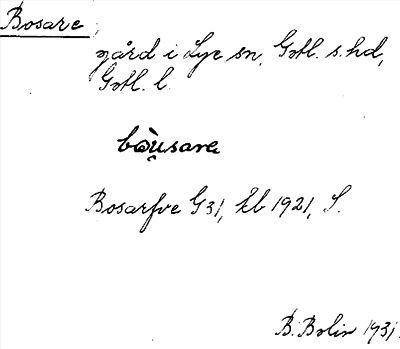 Bosare,
gård i Lye sn, Gotl. s. hd,
Gotl. l.
bòu̯sare
Bosarfve G31, kb 1921, S.
B. Bolin 1931.